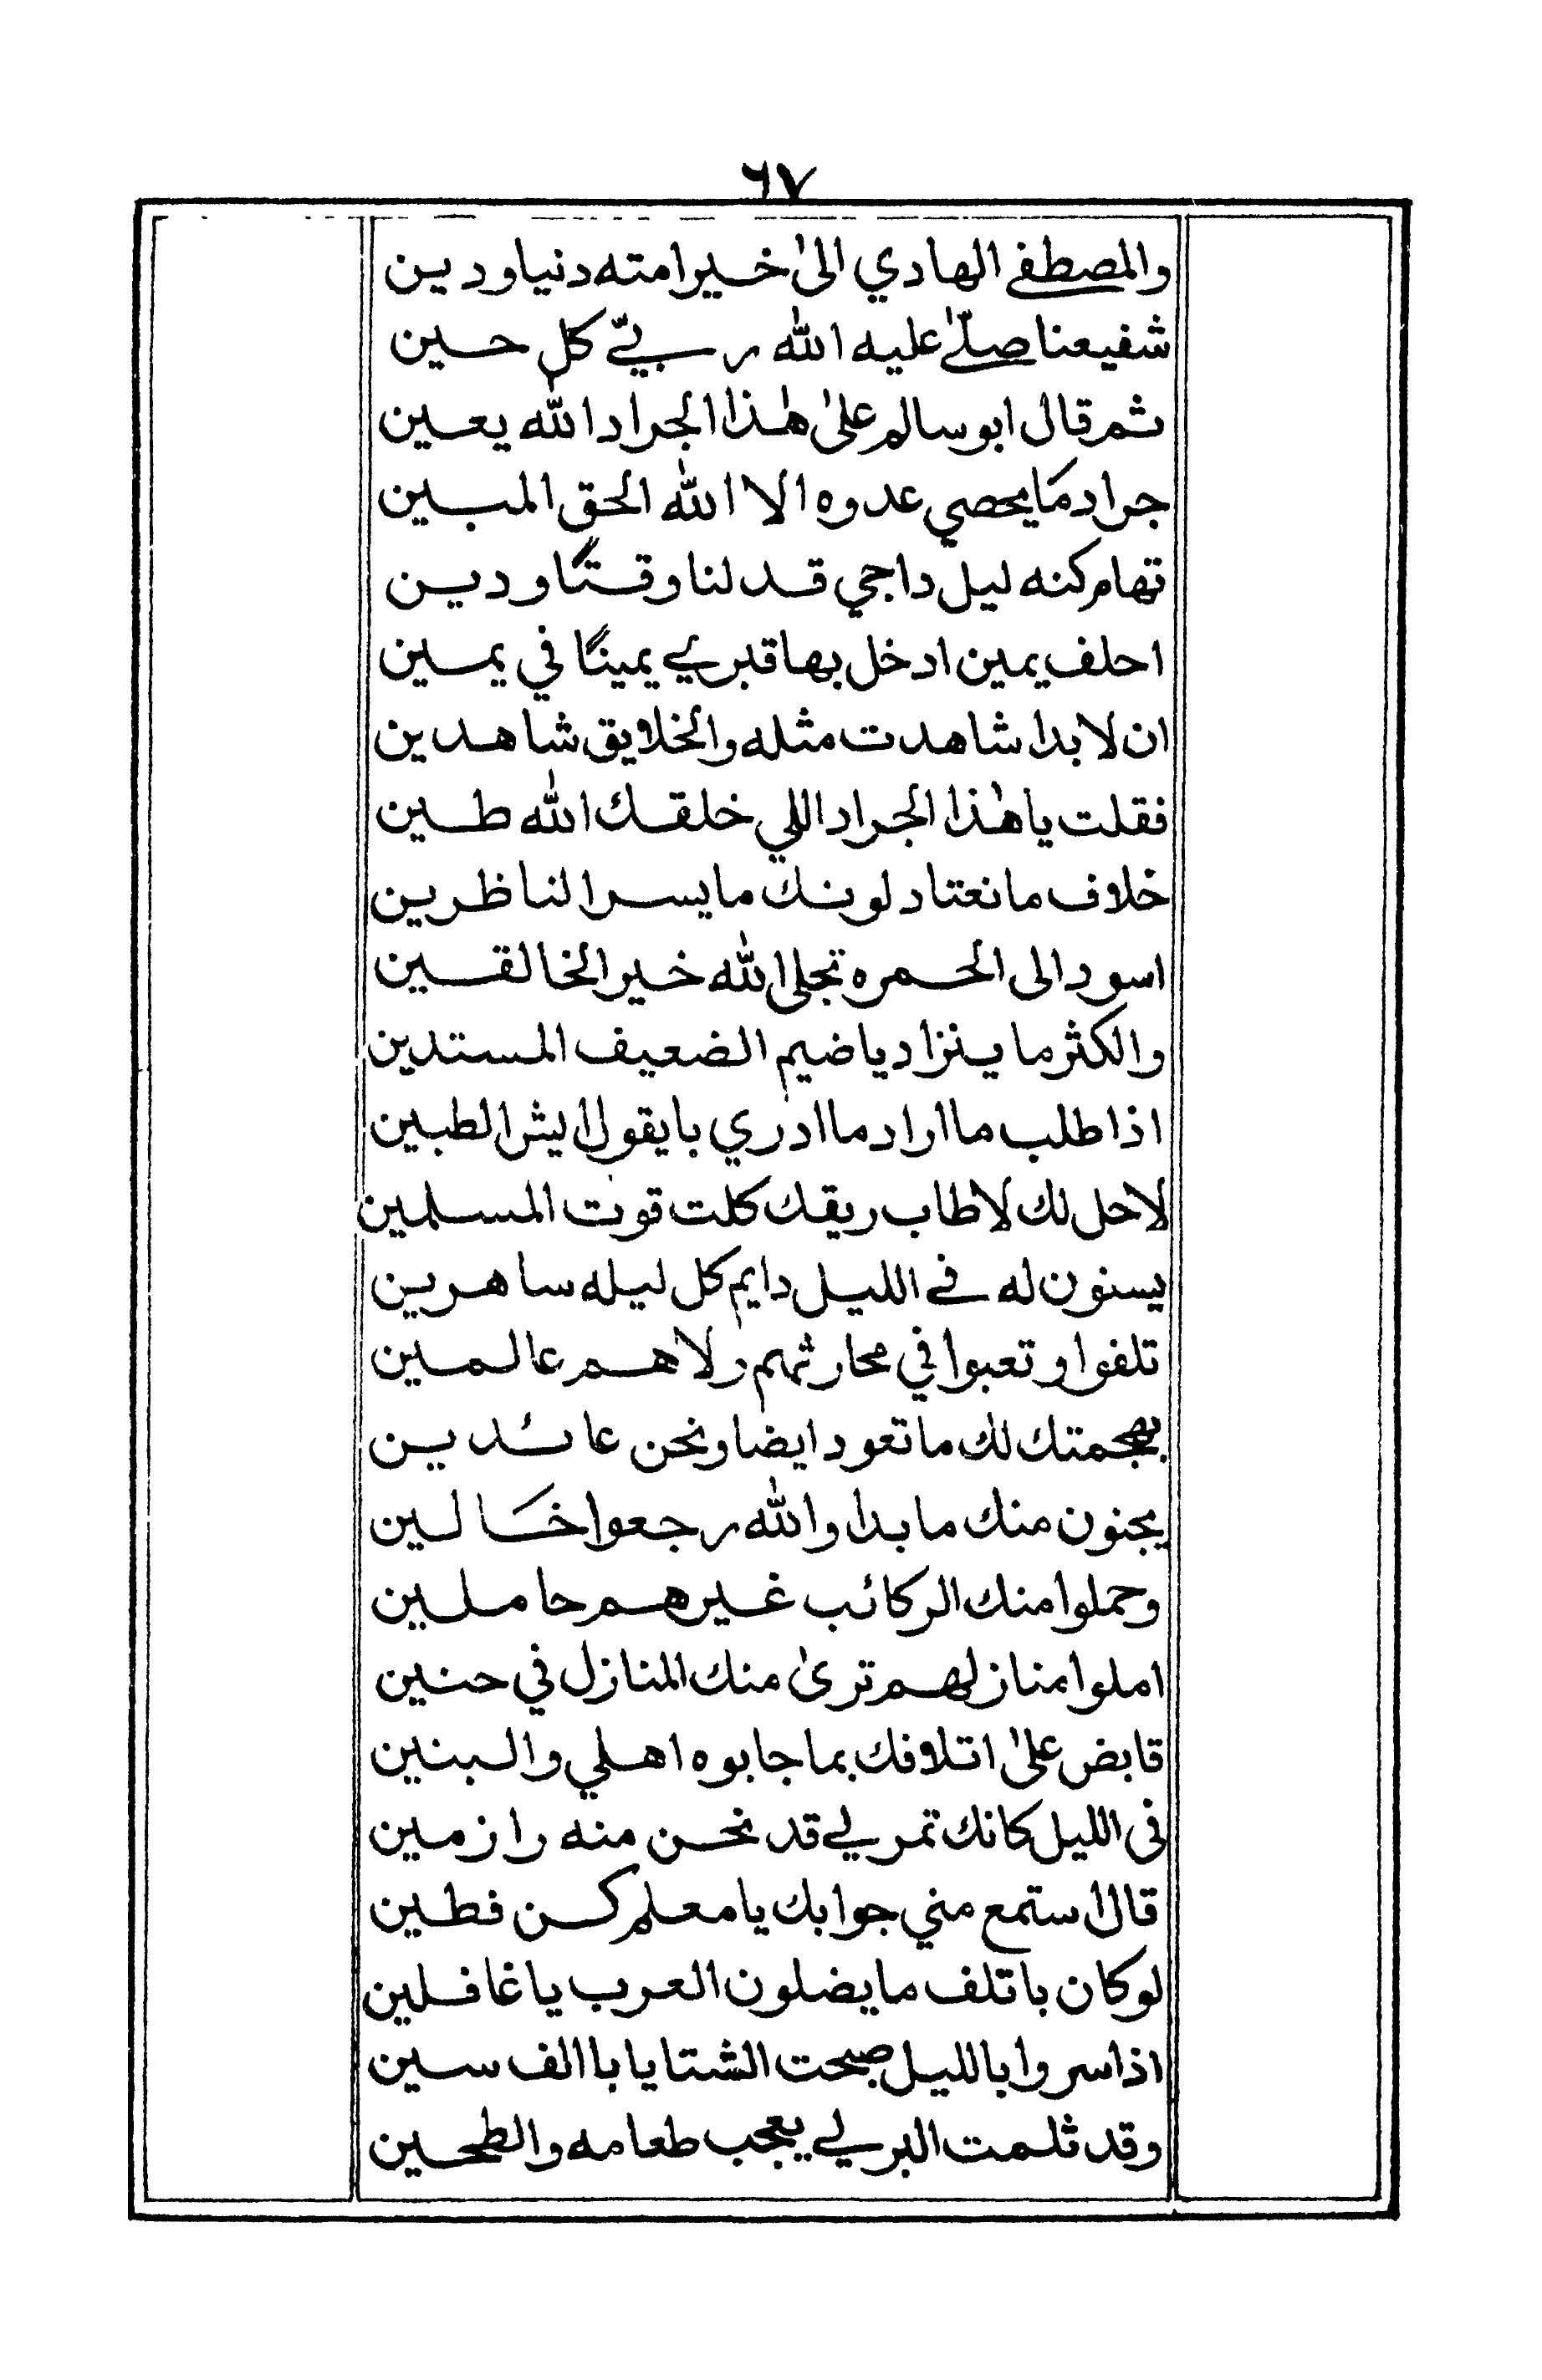 ٦٧
والمصطفى الهادي الىٰ خير امته دنيا ودين
شفيعنا صلّىٰ عليه الله ربيّ كل حين
ثم قال ابو سالم علىٰ هٰذا الجراد الله يعين
جراد مَا يحصي عدوه الا الله الحق المبين
تهام كنه ليل داجي قد لنا وقتًا ودين
احلف يمين ادخل بها قبري يمينًا في يمين
ان لا بدا شاهدت مثله والخلايق شاهدين
فقلت يا هٰذا الجراد اللي خلقك الله طين
خلاف ما نعتاد لونك ما يسر الناظرين
اسود الى الحمره تجلى الله خير الخالقين
والكثر ما ينزاد يا ضيم الضعيف المستدين
اذا طلب ما اراد ما ادري با يقول ايش الطبين
لا حل لك لا طاب ريقك كلت قوت المسلمين
يسنون له في الليل دايم كل ليله ساهرين
تلفوا وتعبوا في محارثهم ولا هم عالمين
بهجمتك لك ما تعود ايضا ونحن عائدين
يجنون منك ما بدا والله رجعوا خَالين
وحملوا منك الركائب غيرهم حاملين
املوا منازلهم ترىٰ منك المنازل في حنين
قابض علىٰ اتلافك بما جابوه اهلي والبنين
في الليل كانك تمر لي قد نحن منه رازمين
قال استمع مني جوابك يا معلم كن فطين
لو كان با تلف ما يضلون العرب يا غافلين
اذا سروا بالليل صبحت الشتايا با الف سين
وقد ثلمت البر لي يعجب طعامه والطحين